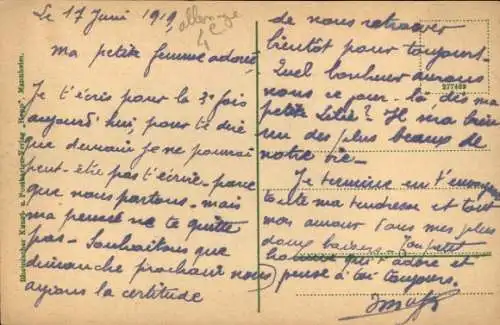 Le 17 Juin 1919
allemagne
4e
ma petite femme adorée,
Je t'écris pour la 3e fois
aujourd'hui, pour te dire
que demain je ne pourrai
peut-être pas t'écrire parce
que nous partons - mais
ma pensée ne te quitte
pas - Souhaitons que
dimanche prochain nous
ayions la certitude
de nous retrouver
bientôt pour toujours -
Quel bonheur aurons
nous ce jour-là, dis ma
petite Lilie? Il ma bien
un des plus beaux de
notre vie -
Je termine en t'envoyant
toute ma tendresse et tout
mon amour dans mes plus
doux baisers. Ton petit
homme qui t'adore et
pense à toi toujours.
Rheinischer Kunst- u. Postkarten-Verlag Mannheim.
277469